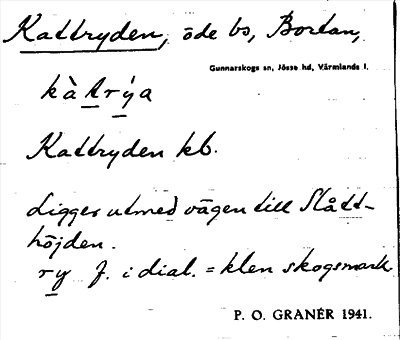 Kattryden, öde bs, Bortan,
Gunnarskogs sn, Jösse hd, Värmlands l.
kàtrýa
Kattryden kb.
Ligger utmed vägen till Slått-
höjden.
ry f. i dial. = klen skogsmark
P. O. GRANÉR 1941.